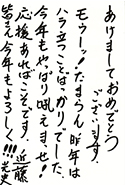 あけましておめでとう
ございます。
モゥーッ!たまらん昨年は
ハラ立つことばっかりでした。
今年もやっぱり吠えまっせ!
応援あればこそです。
皆さん今年もよろしく!!!
近藤光史